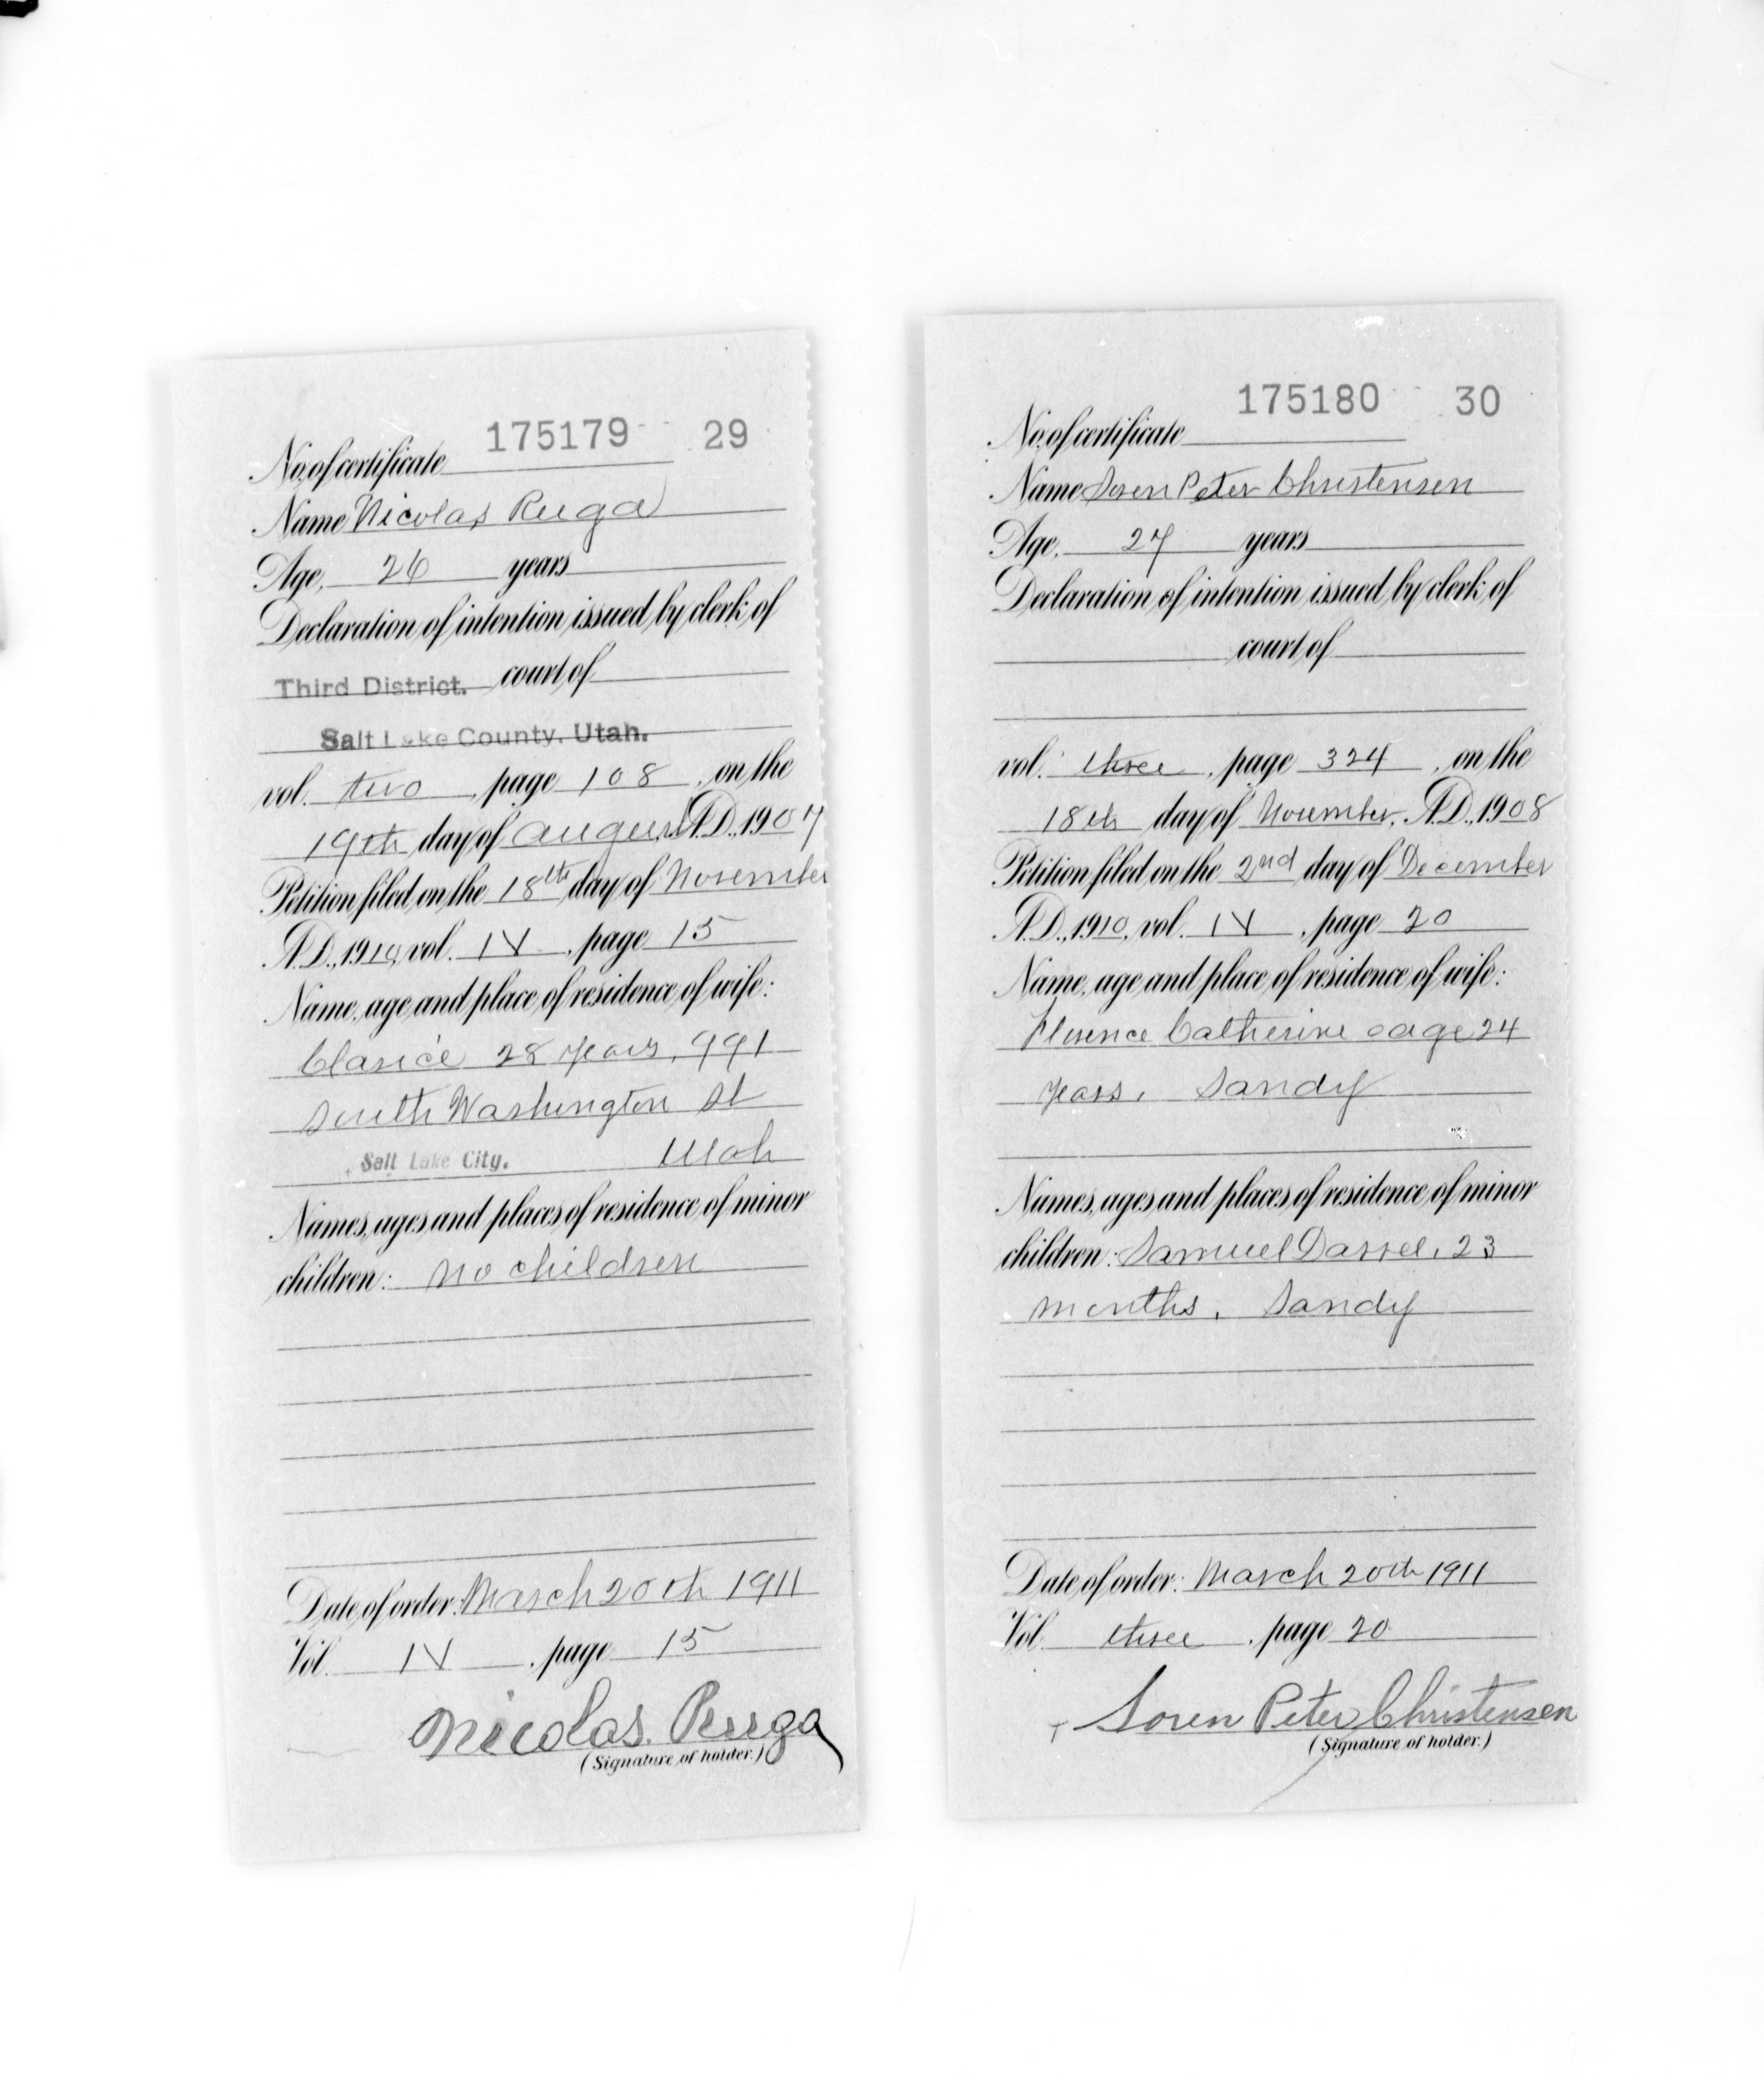 175179 29
No. of certificate
Name Nicolas Ruga
Age, 26 years
Declaration of intention issued by clerk of
Third District. court of
Salt Lake County, Utah.
vol. two, page 108, on the
19th day of August A.D., 1907
Petition filed on the 18th day of November
A.D., 1910, vol. IV, page 15
Name, age and place of residence of wife:
Clarice 28 years, 991
South Washington St
Salt Lake City. Utah
Names, ages and places of residence of minor
children: no children
Date of order: March 20th 1911
Vol. IV, page 15
Nicolas Ruga
(Signature of holder.)
175180 30
No. of certificate
Name Soren Peter Christensen
Age, 27 years
Declaration of intention issued by clerk of
court of
vol. three, page 324, on the
18th day of November, A.D., 1908
Petition filed on the 2nd day of December
A.D., 1910, vol. IV, page 20
Name, age and place of residence of wife:
Florence Catherine age 24
years, Sandy
Names, ages and places of residence of minor
children: Samuel Darrel, 23
months, Sandy
Date of order: March 20th 1911
Vol. three, page 20
Soren Peter Christensen
(Signature of holder.)